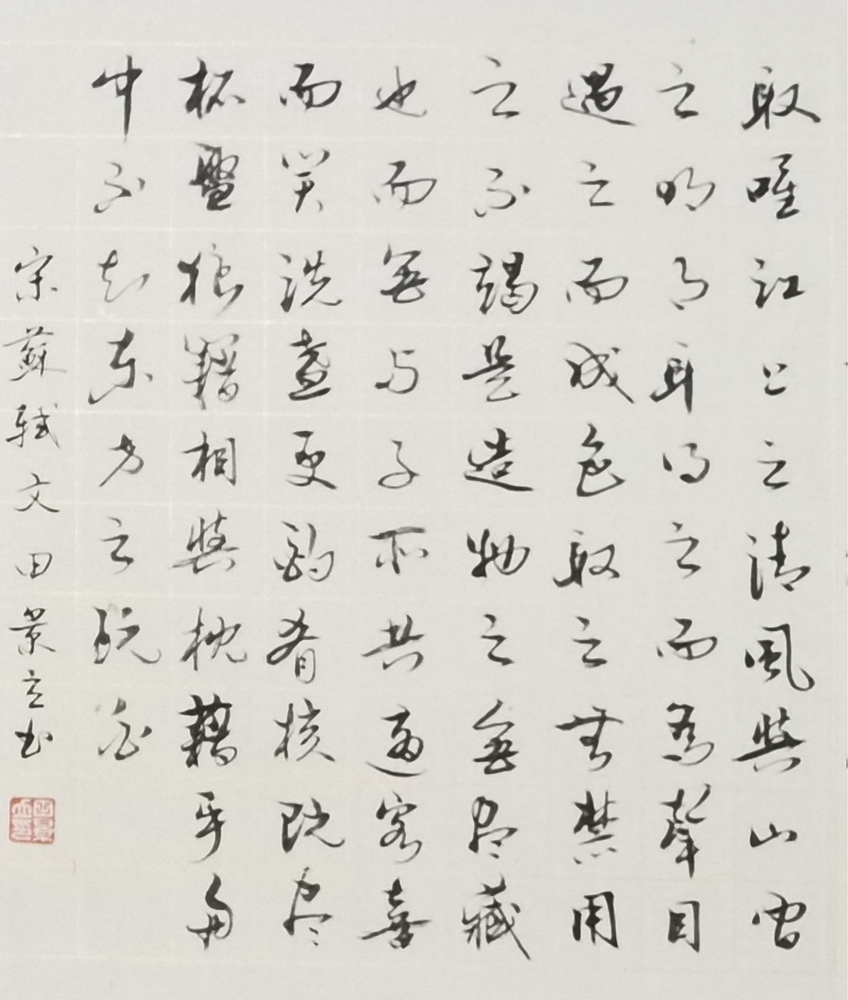 取唯江上之清風與山間
之明月耳得之而為聲目
遇之而成色取之無禁用
之不竭是造物之無尽藏
也而吾与子所共適客喜
而笑洗盞更酌肴核既尽
杯盤狼籍相與枕藉乎舟
中不知東方之既白
宋蘇軾文田景立书